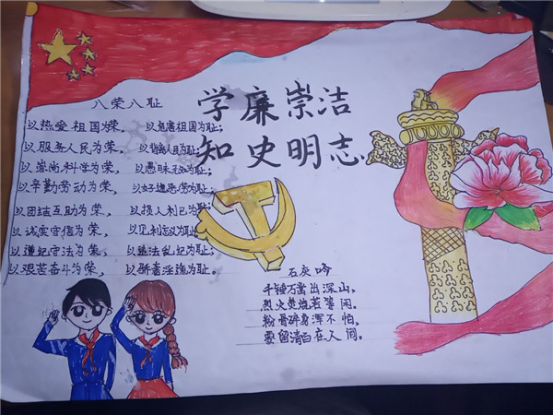 学廉崇洁
知史明志
八荣八耻
以热爱祖国为荣，以危害祖国为耻；
以服务人民为荣，以背离人民为耻；
以崇尚科学为荣，以愚昧无知为耻；
以辛勤劳动为荣，以好逸恶劳为耻；
以团结互助为荣，以损人利己为耻；
以诚实守信为荣，以见利忘义为耻；
以遵纪守法为荣，以违法乱纪为耻；
以艰苦奋斗为荣，以骄奢淫逸为耻。
石灰吟
千锤万凿出深山，
烈火焚烧若等闲。
粉骨碎身浑不怕，
要留清白在人间。